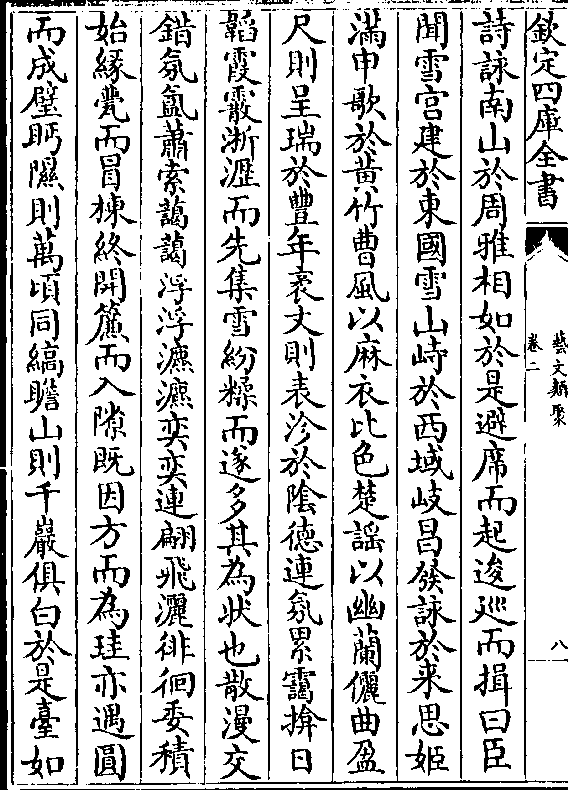 欽定四庫全書
藝文類聚
卷二
八
詩詠南山於周雅相如於是避席而起逡巡而揖曰臣
聞雪宮建於東國雪山峙於西域岐昌發詠於來思姬
滿申歌於黃竹曹風以麻衣比色楚謡以幽蘭儷曲盈
尺則呈瑞於豐年袤丈則表沴於隂徳連氛累靄揜日
韜霞霰淅瀝而先集雪紛糅而遂多其為狀也散漫交
錯氛氲蕭索藹藹浮浮瀌瀌奕奕連翩飛灑徘徊委積
始縁甍而冒棟終開簾而入隙既因方而為珪亦遇圓
而成璧眄隰則萬頃同縞瞻山則千巖俱白於是臺如